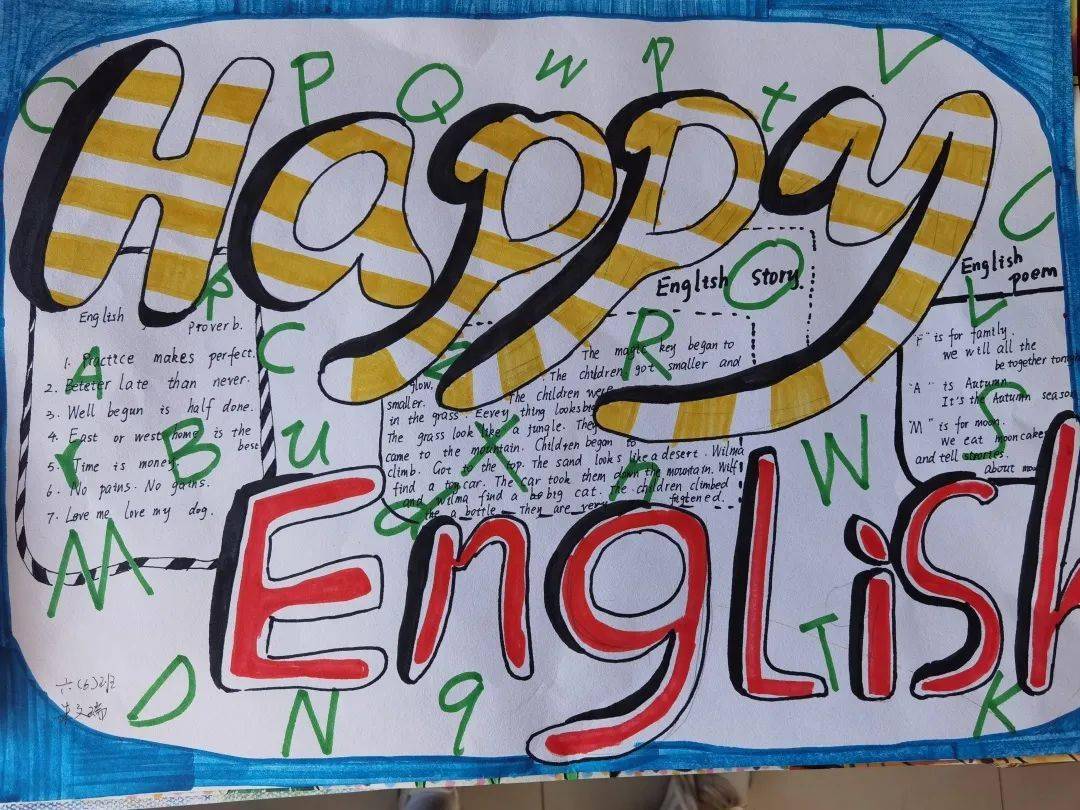 Happy
English
English Proverb.
1. Practice makes perfect.
2. Beteter late than never.
3. Well begun is half done.
4. East or west home is the best
5. Time is money.
6. No pains. No gains.
7. Love me love my dog.
English Story.
The magic key began to
glow. The children got smaller and
smaller. The children were
in the grass. Eevery thing looks big
The grass look like a jungle. They
came to the mountain. Children began to
climb. Got to the top. The sand looks like a desert. Wilma
find a toy car. The car took them down the mountain. Wilf
and wilma find a big cat. The children climbed
a bottle. They are very fistened.
English poem
"F" is for family.
we will all the
be together
"A" is Autumn
It's the Autumn season
"M" is for moon.
we eat mooncakes
and tell stories.
about
P
Q
w
P
t
V
C
R
A
C
Z
R
L
r
B
u
W
M
T
D
N
9
K
六(6)班